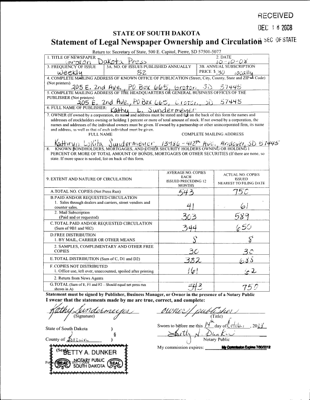 RECEIVED
DEC 18 2008
SEC OF STATE
STATE OF SOUTH DAKOTA
Statement of Legal Newspaper Ownership and Circulation
Return to: Secretary of State, 500 E. Capitol, Pierre, SD 57501-5077
1. TITLE OF NEWSPAPER
Dakota Press
2. DATE
3. FREQUENCY OF ISSUE
Weekly
3A. NO. OF ISSUES PUBLISHED ANNUALLY
52
3B. ANNUAL SUBSCRIPTION
PRICE $ 30
4. COMPLETE MAILING ADDRESS OF KNOWN OFFICE OF PUBLICATION (Street, City, County, State and ZIP+4 Code)
(Not Printers)
205 E. 2nd Ave, PO Box 665, Groton, SD 57445
5. COMPLETE MAILING ADDRESS OF THE HEADQUARTERS OF GENERAL BUSINESS OFFICE OF THE
PUBLISHER (Not printers)
205 E. 2nd Ave, PO Box 665, Groton, SD 57445
6. FULL NAME OF PUBLISHER
Kathy L. Sundermeyer
7. OWNER (If owned by a corporation, its name and address must be stated and on the back of this form the names and
addresses of stockholders owning or holding 1 percent or more of total amount of stock. If not owned by a corporation, the
names and addresses of the individual owners must be given. If owned by a partnership or other unincorporated firm, its name
and address, as well as that of each individual must be given.
FULL NAME
COMPLETE MAILING ADDRESS
Sundermeyer
8. KNOWN BONDHOLDERS, MORTGAGEES, AND OTHER SECURITY HOLDERS OWNING OR HOLDING 1
PERCENT OR MORE OF TOTAL AMOUNT OF BONDS, MORTGAGES OR OTHER SECURITIES (If there are none, so
state. If more space is needed, list on back of this form.
9. EXTENT AND NATURE OF CIRCULATION
AVERAGE NO. COPIES
EACH
ISSUED PRECEDING 12
MONTHS
ACTUAL NO. COPIES
ISSUED
NEAREST TO FILING DATE
A. TOTAL NO. COPIES (Net Press Run)
543
750
B. PAID AND/OR REQUESTED CIRCULATION
1. Sales through dealers and carriers, street vendors and
counter sales.
41
61
2. Mail Subscription
(Paid and or requested)
303
589
C. TOTAL PAID AND/OR REQUESTED CIRCULATION
(Sum of 9B1 and 9B2)
344
650
D. FREE DISTRIBUTION
1. BY MAIL, CARRIER OR OTHER MEANS
8
8
2. SAMPLES, COMPLIMENTARY AND OTHER FREE
COPIES
30
30
E. TOTAL DISTRIBUTION (Sum of C, D1 and D2)
382
688
F. COPIES NOT DISTRIBUTED
1. Office use, left over, unaccounted, spoiled after printing
161
62
2. Return from News Agents
G. TOTAL (Sum of E, F1 and F2 - Should equal net press run
shown in A)
543
750
Statement must be signed by Publisher, Business Manager, or Owner in the presence of a Notary Public
I swear that the statements made by me are true, correct, and complete:
Kathy Sundermeyer
(Signature)
owner/publisher
(Title)
State of South Dakota
County of
Sworn to before me this
day of
Betty A. Dunker
Notary Public
My commission expires:
BETTY A. DUNKER
NOTARY PUBLIC
SOUTH DAKOTA